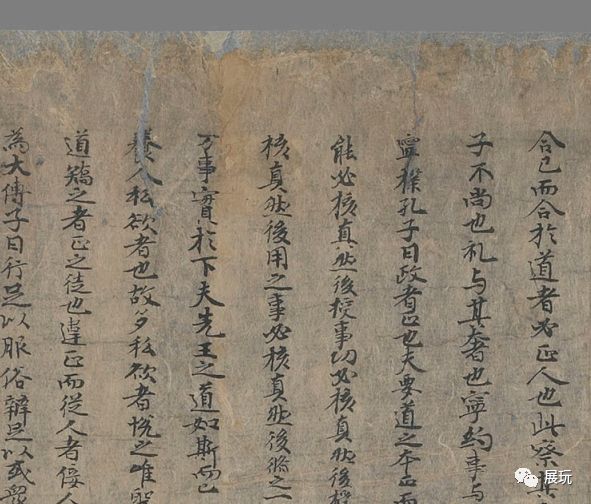 合己而合於道者必正人也此察
子不尚也礼与其奢也寧約事与
寧樸孔子曰政者正也夫要道之本正而
能必核真然後授事功必核真然後授
核真然後用之事必核真然後脩之一
万事實於下夫先王之道如斯而已
養人私欲者也故多私欲者悦之唯聖
道矯之者正之徒也違正而從人者佞人
為大傅子曰行足以服俗辯足以或眾
展玩